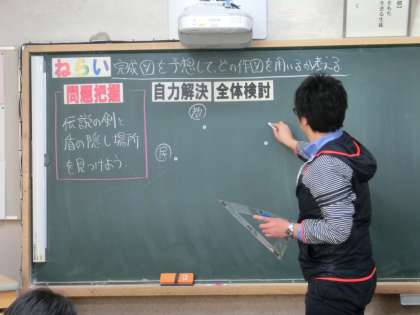 ねらい 完成図を予想して、どの作図を用いるか考える
問題把握
自力解決 全体検討
伝説の剣と
盾の隠し場所
を見つけよう.